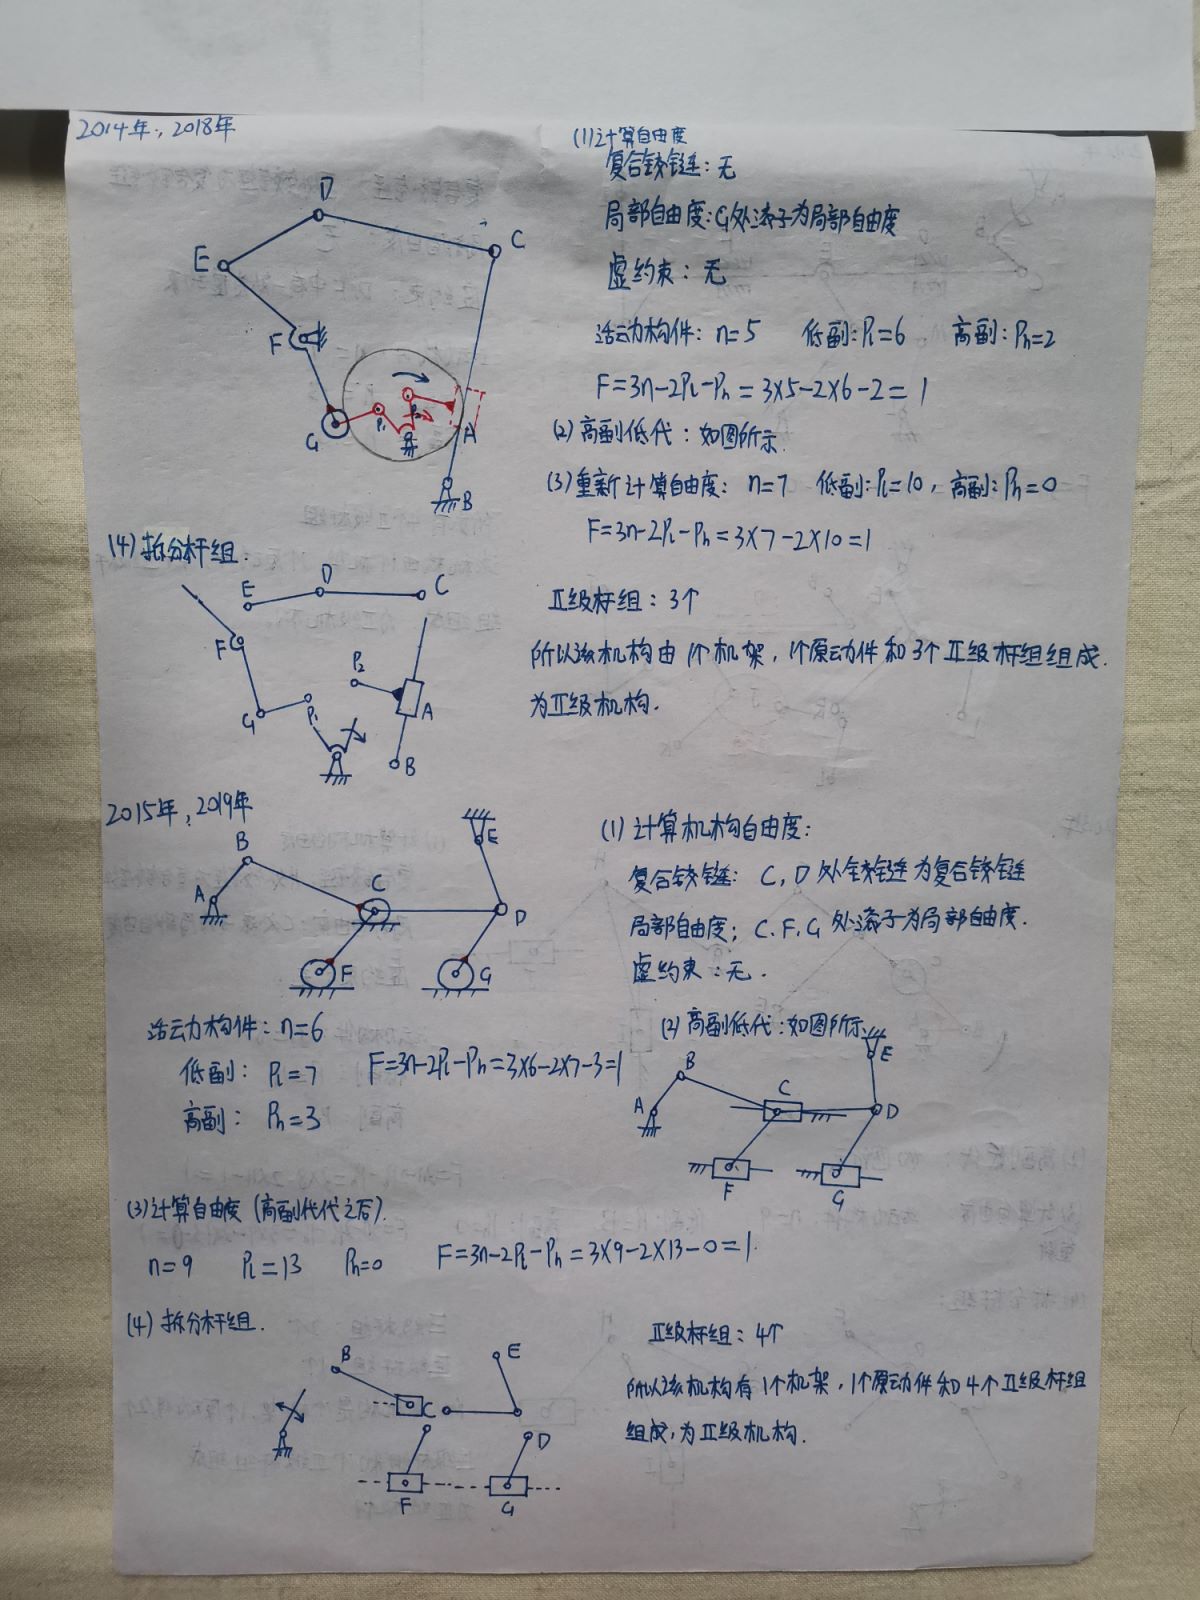 2014年,2018年
(1)计算自由度
复合铰链:无
局部自由度:G处滚子为局部自由度
虚约束:无
活动构件:n=5 低副:Pl=6 高副:Ph=2
F=3n-2Pl-Ph=3×5-2×6-2=1
(2)高副低代:如图所示.
(3)重新计算自由度:n=7 低副:Pl=10,高副:Ph=0
F=3n-2Pl-Ph=3×7-2×10=1
D
C
E
F
G
P1
P2
A
B
(4)拆分杆组:
E
D
C
F
G
P1
P2
A
B
Ⅱ级杆组:3个
所以该机构由1个机架,1个原动件和3个Ⅱ级杆组组成.
为Ⅱ级机构.
2015年,2019年
B
A
C
E
D
F
G
(1)计算机构自由度:
复合铰链:C,D处铰链为复合铰链
局部自由度;C.F.G处滚子为局部自由度.
虚约束:无.
活动构件:n=6
低副:Pl=7
高副:Ph=3
F=3n-2Pl-Ph=3×6-2×7-3=1
(2)高副低代:如图所示
B
A
C
E
D
F
G
(3)计算自由度(高副代代之后).
n=9 Pl=13 Ph=0 F=3n-2Pl-Ph=3×9-2×13-0=1.
(4)拆分杆组.
B
C
E
D
F
G
Ⅱ级杆组:4个
所以该机构有1个机架,1个原动件和4个Ⅱ级杆组
组成,为Ⅱ级机构.